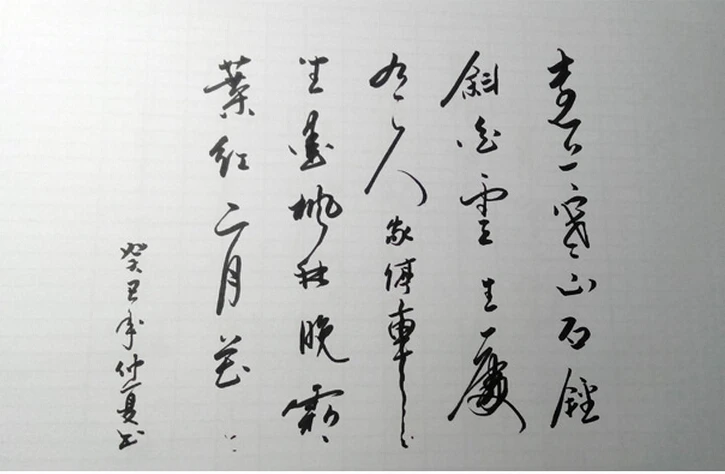 遠上寒山石徑
斜白雲生處
有人家停車
坐愛楓林晚霜
葉红二月花
癸年仲夏书